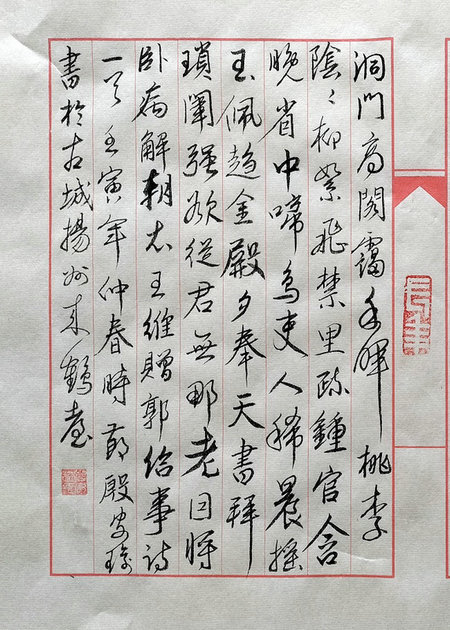 洞門高閣靄余暉桃李
陰〻柳絮飛禁里疏鍾官舍
晚省中啼鳥吏人稀晨搖
玉佩趨金殿夕奉天書拜
瑣闈强欲從君無那老因將
卧病解朝衣王維贈郭給事詩
一首壬寅年仲春時節殷
書於古城揚州來鶴臺